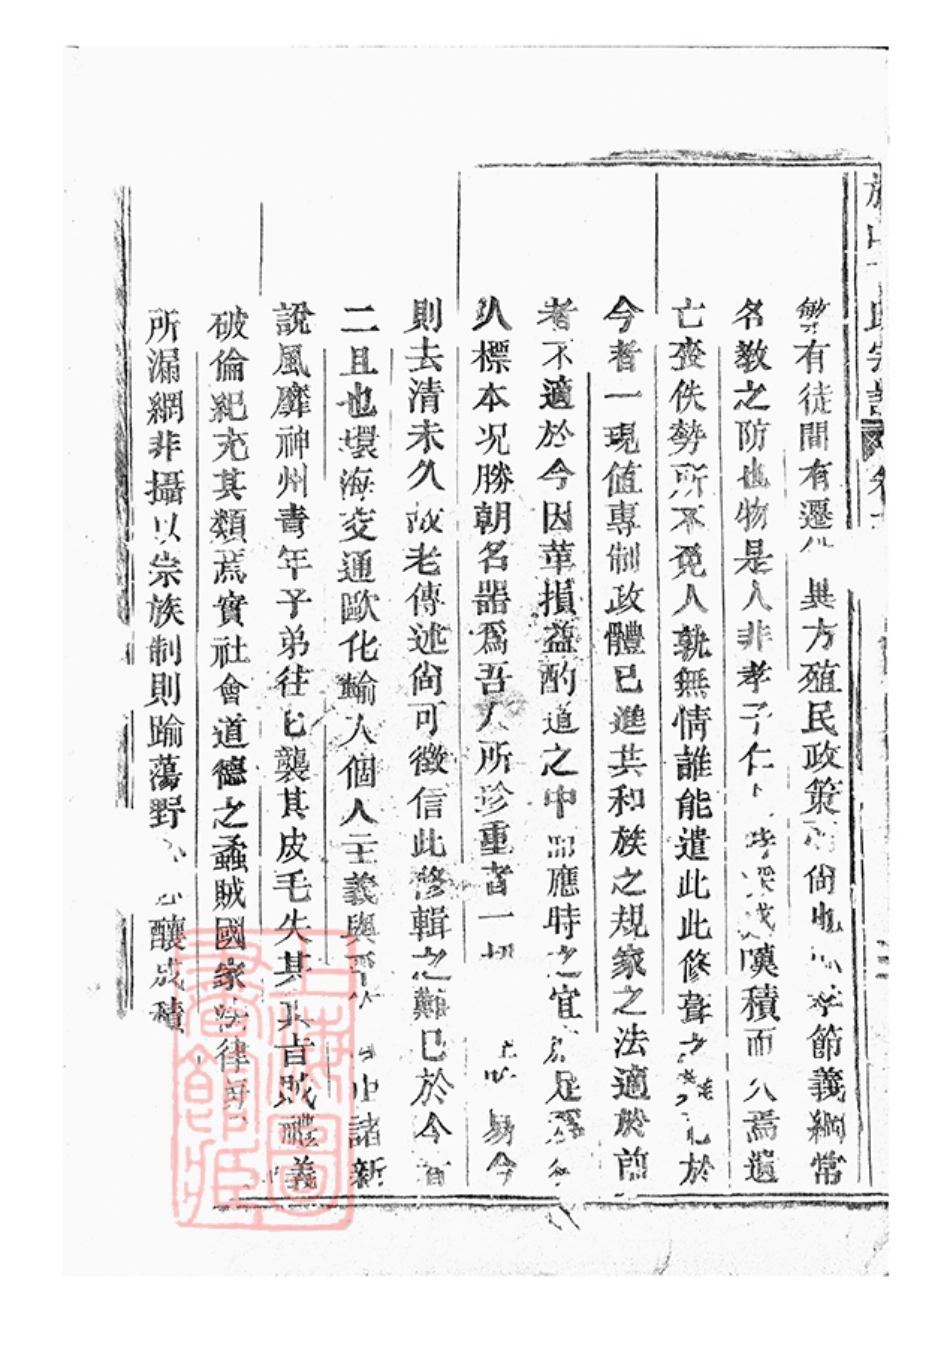 氏宗譜
繁有徒間有遷 異方殖民政策 尙 孝節義綱常
名教之防也物是人非孝子仁 時深 嘆積而久焉遺
亡喪佚勢所不免人孰無情誰能遣此此修葺之 於
今者一現值專制政體已進共和族之規家之法適於前
者不適於今因革損益酌道之中 應時之宜 足爲
人標本况勝朝名器爲吾人所珍重者一切 易今
則去清未久故老傳述尙可徵信此修輯之難已於今
二且也環海交通歐化輸入個人主義與 中諸新
說風靡神州靑年子弟往匕襲其皮毛失其眞旨賊禮義
破倫紀充其類蔗實社會道德之蟊賊國家法律
所漏網非攝以宗族制則踰蕩野 釀成積
上海圖書館藏